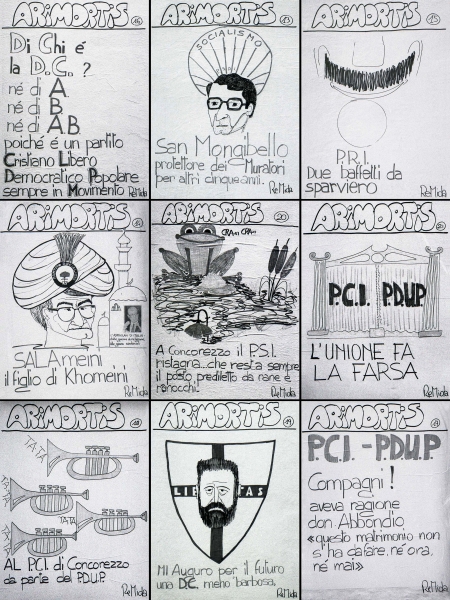 ARIMORTIS
Di Chi é
la D.C. ?
né di A
né di B
né di A.B.
poiché é un partito
Cristiano Libero
Democratico Popolare
sempre in Movimento
ReMida
ARIMORTIS
SOCIALISMO
San Mongibello
protettore dei Muratori
per altri cinque anni.
ReMida
ARIMORTIS
15
P.R.I.
Due baffetti da
sparviero
ReMida
ARIMORTIS
SALAmeini
il figlio di Khomeini
ReMida
ARIMORTIS
20
CRA.. CRA..
A Concorezzo il P.S.I.
ristagna...che resta sempre
il posto prediletto da rane e
ranocchi.
ReMida
ARIMORTIS
P.C.I. P.D.U.P
L'UNIONE FA
LA FARSA
ReMida
ARIMORTIS
TA-TA
TA-TA
AL P.C.I. di Concorezzo
da parte del P.D.U.P.
ReMida
ARIMORTIS
LIBERTAS
Mi Auguro per il futuro
una D.C. meno "barbosa"
ReMida
ARIMORTIS
P.C.I. - P.D.U.P.
Compagni !
aveva ragione
don Abbondio
«questo matrimonio non
s'ha da fare, né ora,
né mai»
ReMida